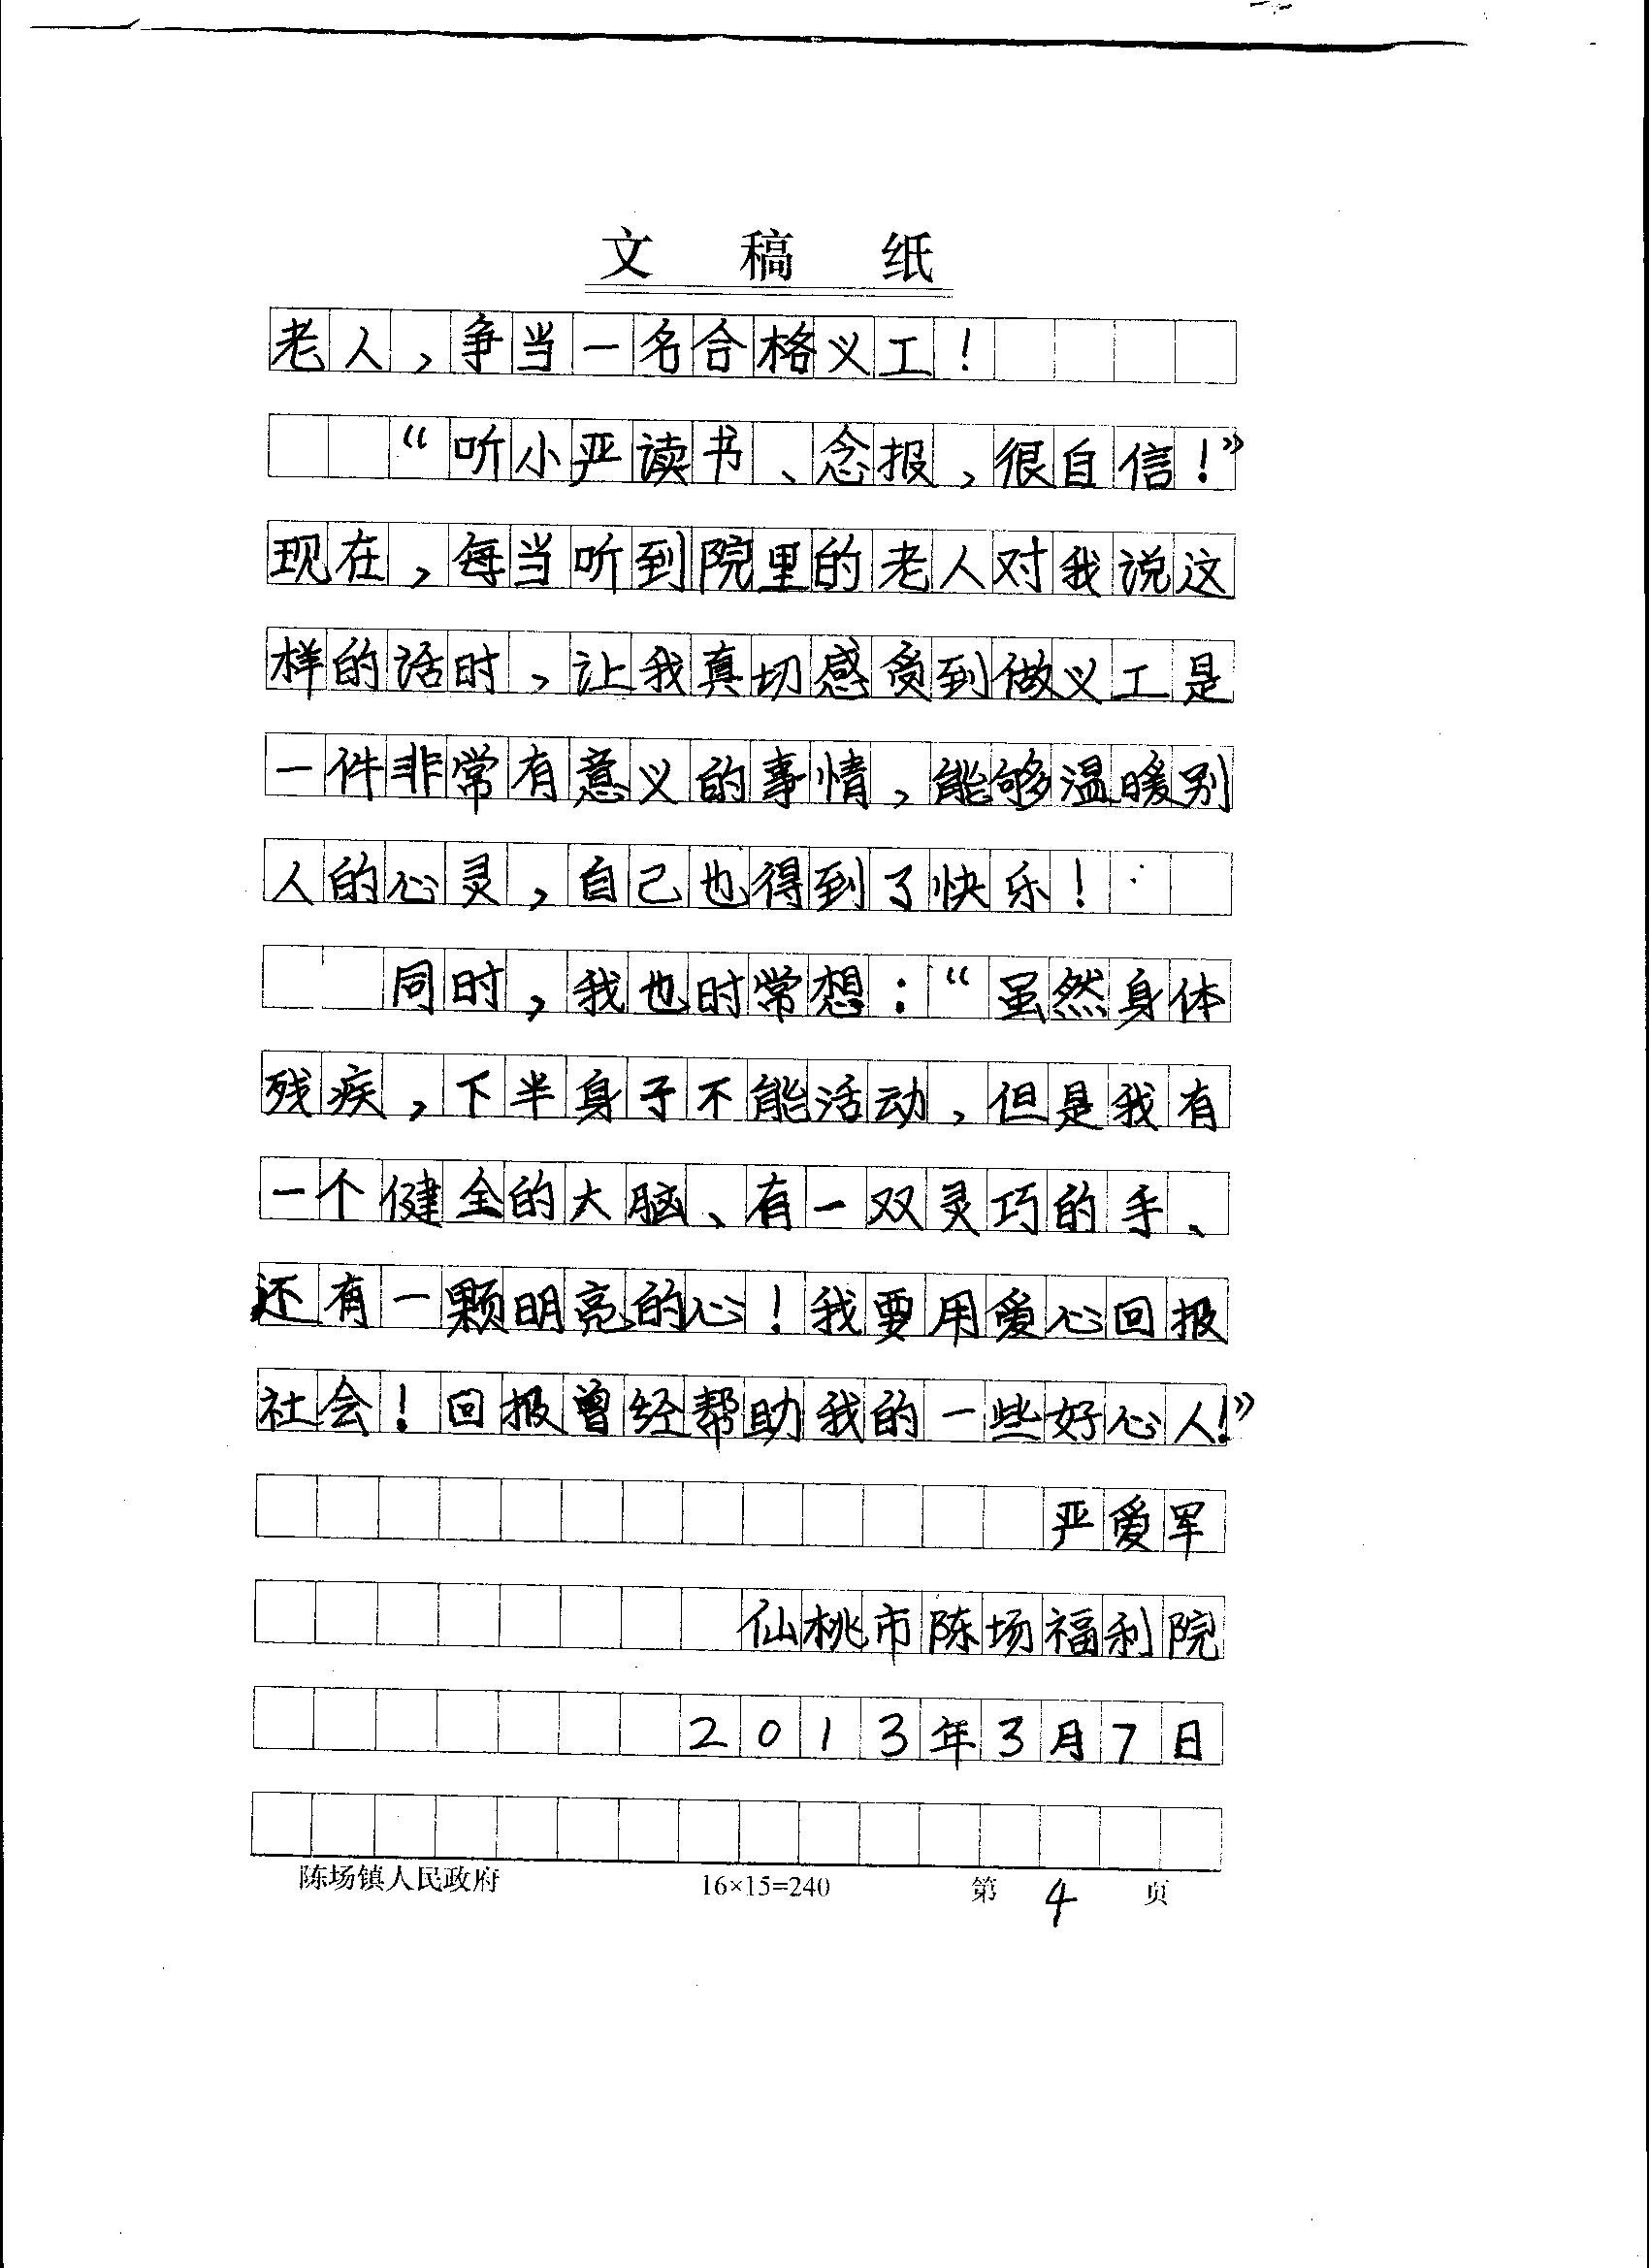 文稿纸
老人，争当一名合格义工！
“听小严读书、念报，很自信！”
现在，每当听到院里的老人对我说这
样的话时，让我真切感受到做义工是
一件非常有意义的事情，能够温暖别
人的心灵，自己也得到了快乐！
同时，我也时常想：“虽然身体
残疾，下半身子不能活动，但是我有
一个健全的大脑、有一双灵巧的手、
还有一颗明亮的心！我要用爱心回报
社会！回报曾经帮助我的一些好心人！”
严爱军
仙桃市陈场福利院
2013年3月7日
陈场镇人民政府 16×15=240 第4页